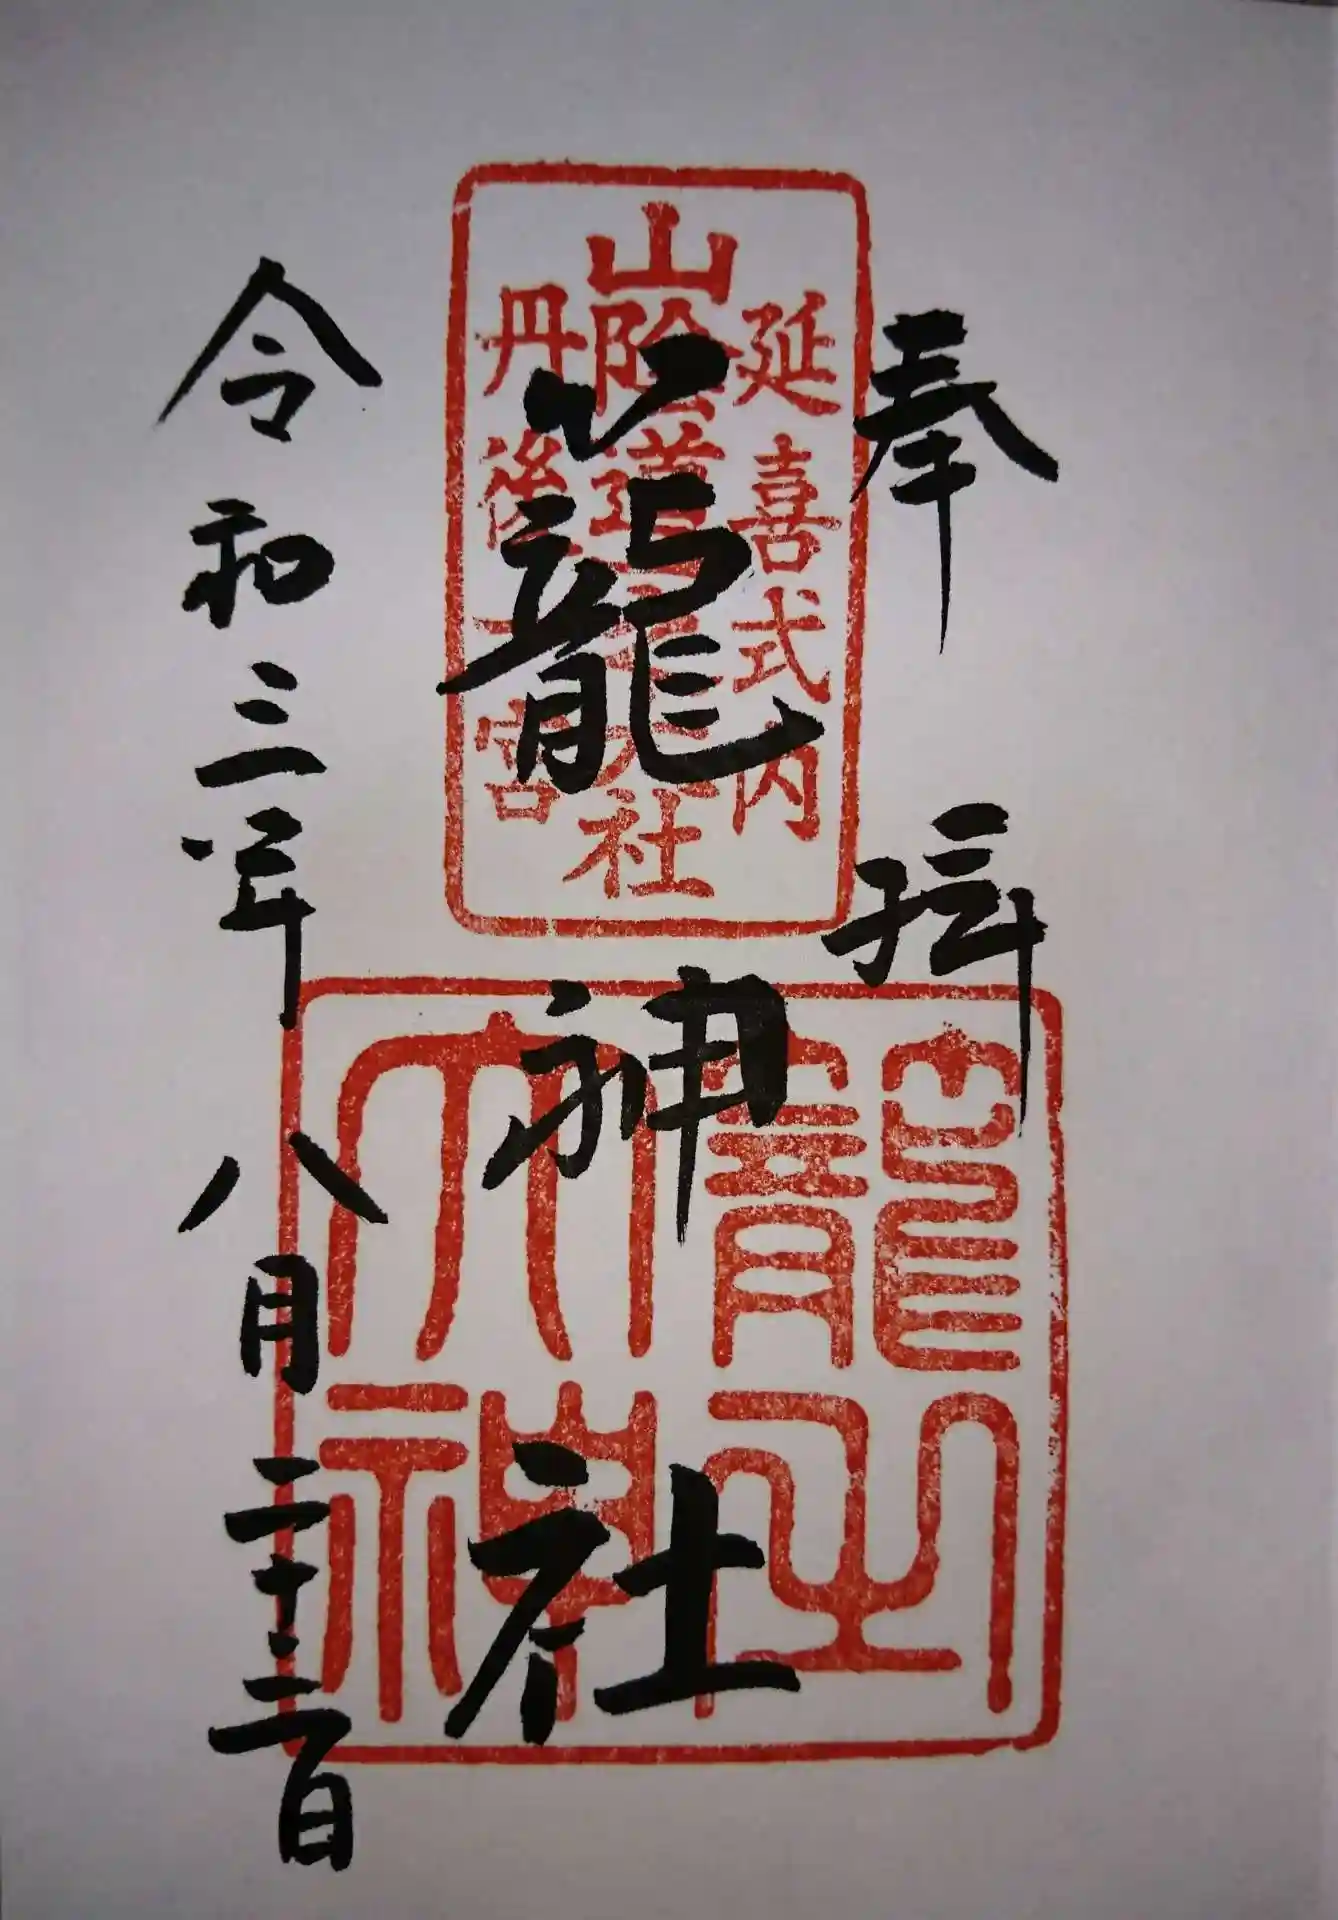 奉拝
延喜式内
山陰道一之大社
丹後一宮
籠神社
大神
令和三年八月二十三日